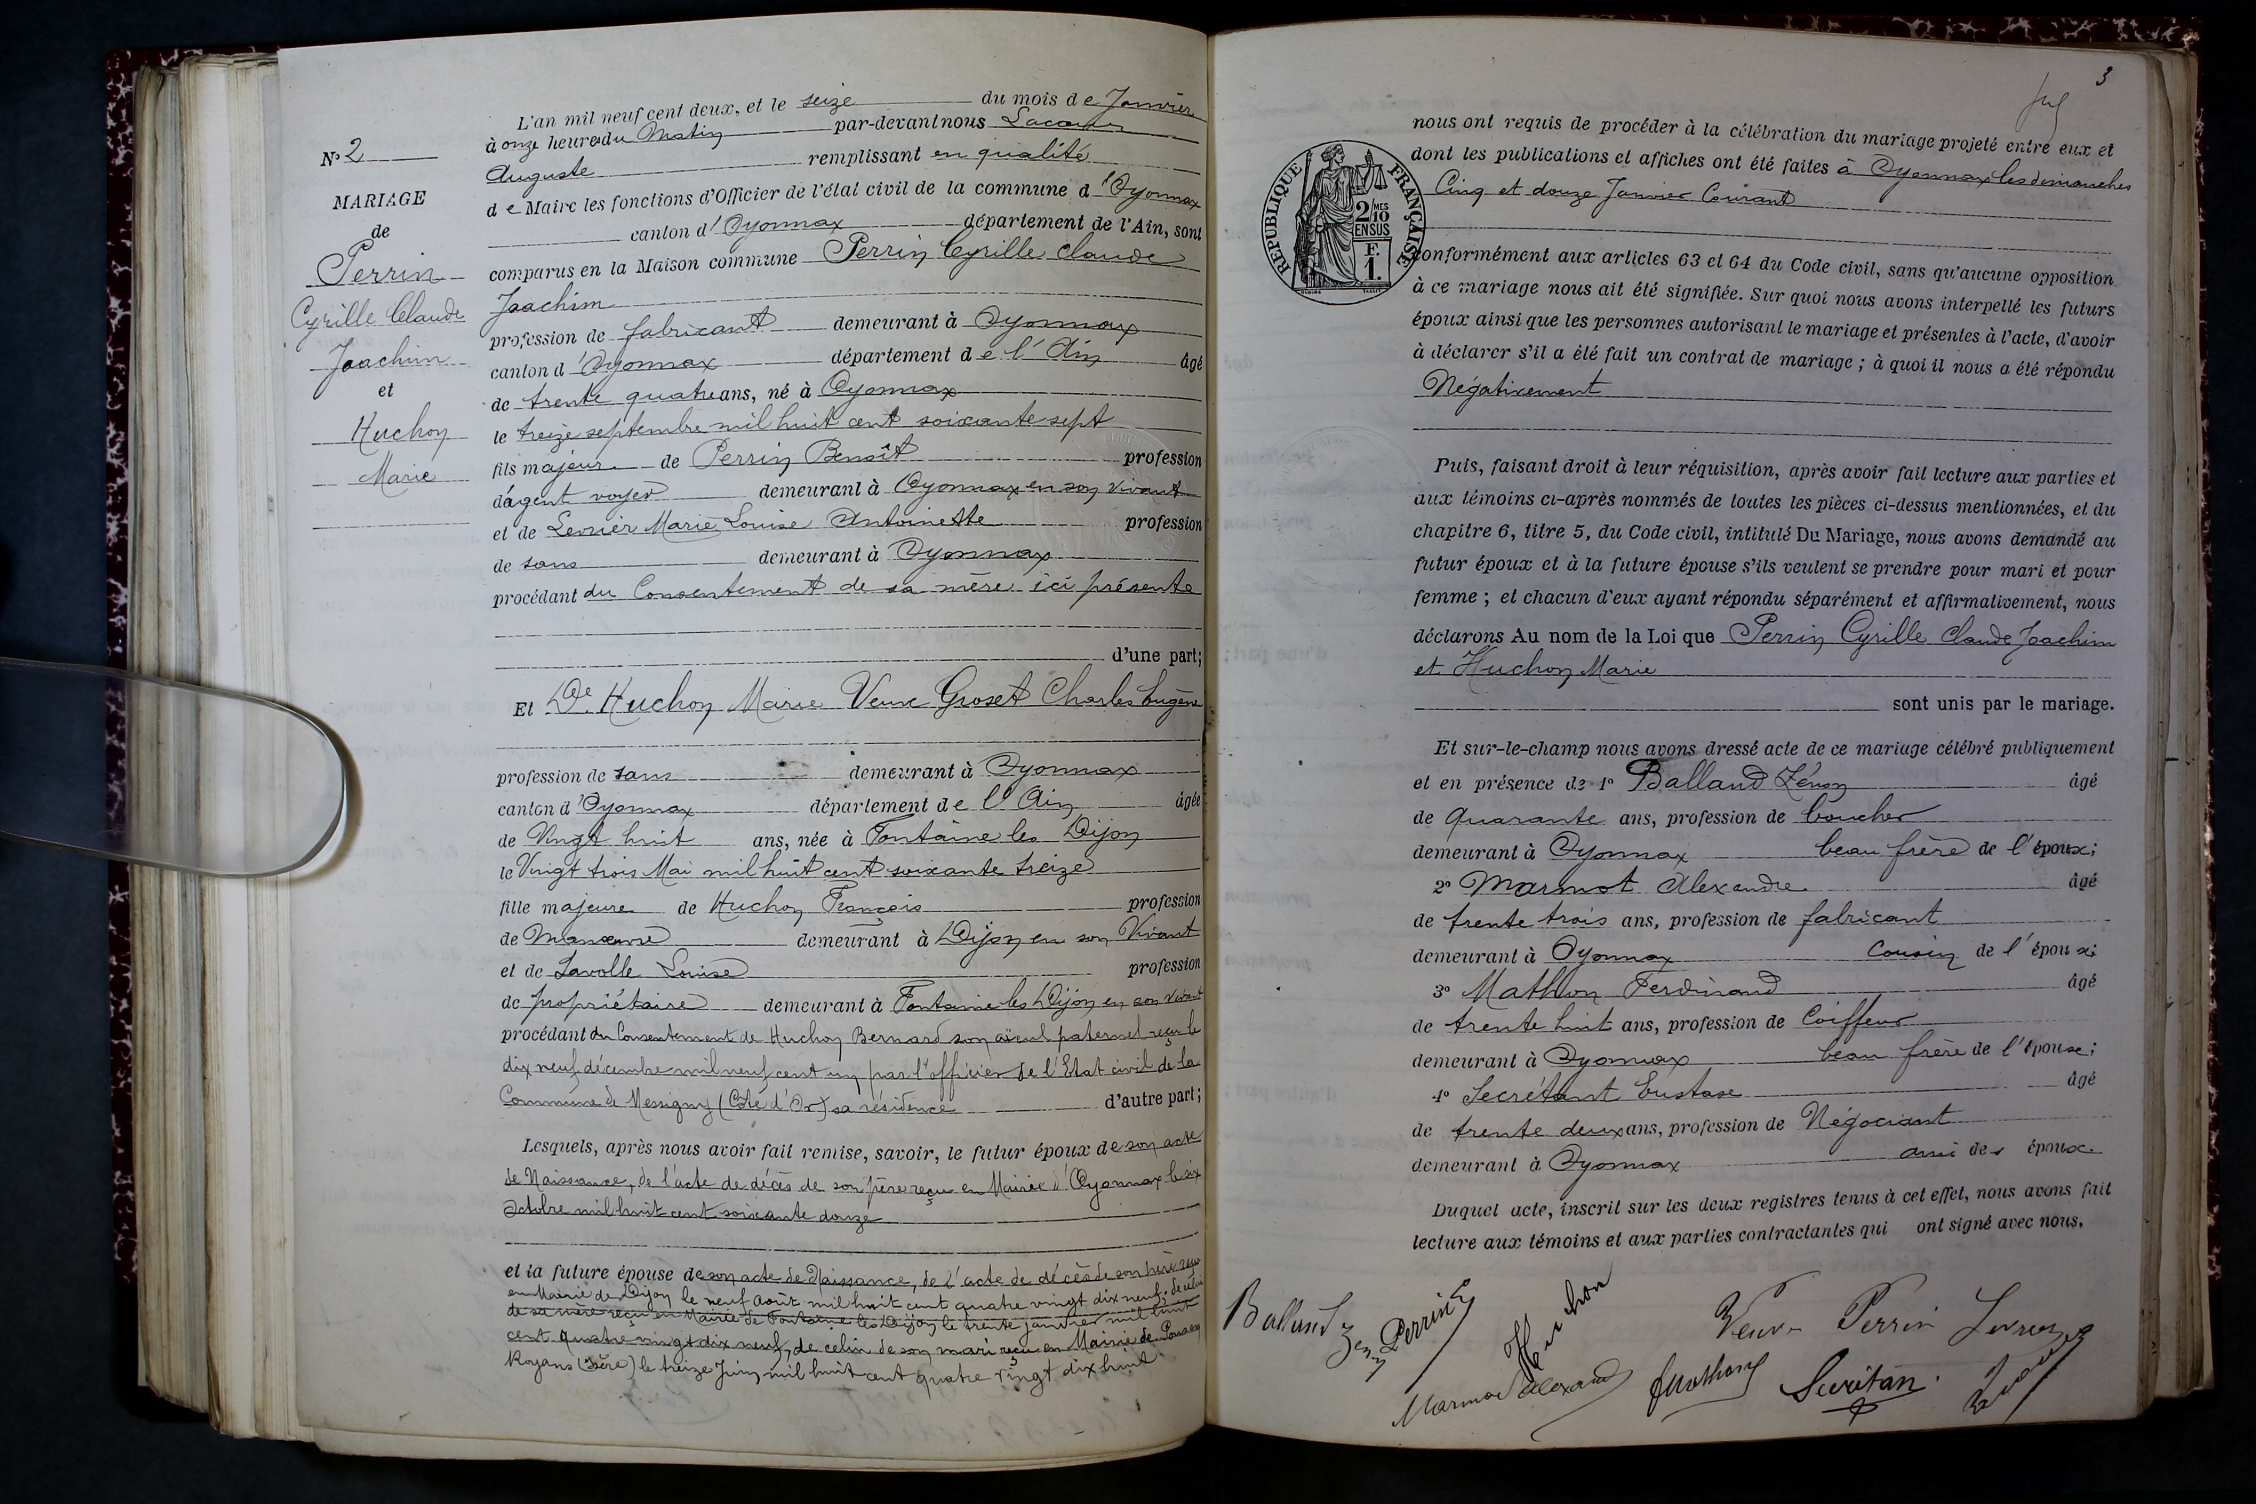 L'an mil neuf cent deux, et le seize du mois de Janvier
à onze heures du Matin par-devant nous
Auguste remplissant en qualité
de Maire les fonctions d'Officier de l'état civil de la commune d'Oyonnax
canton d'Oyonnax département de l'Ain, sont
comparus en la Maison commune Perrin Cyrille Claude
Joachim
profession de fabricant demeurant à Oyonnax
canton d'Oyonnax département de l'Ain âgé
de trente quatre ans, né à Oyonnax
le treize septembre mil huit cent soixante sept
fils majeur de Perrin Benoît profession
d'agent voyer demeurant à Oyonnax en son vivant
et de Levrier Marie Louise Antoinette profession
de sans demeurant à Oyonnax
procédant du Consentement de sa mère ici présente
d'une part;
Et De Huchon Marie Veuve Groset Charles Eugène
profession de sans demeurant à Oyonnax
canton d'Oyonnax département de l'Ain âgée
de Vingt huit ans, née à Fontaine les Dijon
le Vingt trois Mai mil huit cent soixante treize
fille majeure de Huchon François profession
de Manœuvre demeurant à Dijon en son Vivant
et de Lavolle Louise profession
de propriétaire demeurant à Fontaine les Dijon en son vivant
procédant du Consentement de Huchon Bernard son aïeul paternel reçu le
dix neuf décembre mil neuf cent un par l'officier de l'Etat civil de la
Commune de Messigny (Côte d'Or) sa résidence d'autre part;
Lesquels, après nous avoir fait remise, savoir, le futur époux de son acte
de Naissance, de l'acte de décès de son père reçu en Mairie d'Oyonnax le six
Octobre mil huit cent soixante douze
et la future épouse de son acte de Naissance, de l'acte de décès de son père reçu
en Mairie de Dijon le neuf Août mil huit cent quatre vingt dix neuf, de celui
de sa mère reçu en Mairie de Fontaine les Dijon le trente janvier mil huit
cent quatre vingt dix neuf, de celui de son mari reçu en Mairie de
Royans (Isère) le treize Juin mil huit cent quatre vingt dix huit
N° 2
MARIAGE
de
Perrin
Cyrille Claude
Joachim
et
Huchon
Marie
3
RÉPUBLIQUE FRANÇAISE
2/10 MES
EN SUS
F.
1.
nous ont requis de procéder à la célébration du mariage projeté entre eux et
dont les publications et affiches ont été faites à Oyonnax les dimanches
Cinq et douze Janvier Courant
conformément aux articles 63 et 64 du Code civil, sans qu'aucune opposition
à ce mariage nous ait été signifiée. Sur quoi nous avons interpellé les futurs
époux ainsi que les personnes autorisant le mariage et présentes à l'acte, d'avoir
à déclarer s'il a été fait un contrat de mariage ; à quoi il nous a été répondu
Négativement
Puis, faisant droit à leur réquisition, après avoir fait lecture aux parties et
aux témoins ci-après nommés de toutes les pièces ci-dessus mentionnées, et du
chapitre 6, titre 5, du Code civil, intitulé Du Mariage, nous avons demandé au
futur époux et à la future épouse s'ils veulent se prendre pour mari et pour
femme ; et chacun d'eux ayant répondu séparément et affirmativement, nous
déclarons Au nom de la Loi que Perrin Cyrille Claude Joachim
et Huchon Marie
sont unis par le mariage.
Et sur-le-champ nous avons dressé acte de ce mariage célébré publiquement
et en présence de 1° Balland Zénon âgé
de quarante ans, profession de boucher
demeurant à Oyonnax beau frère de l'époux;
2° Marmot Alexandre âgé
de trente trois ans, profession de fabricant
demeurant à Oyonnax Cousin de l'époux;
3° Mathon Ferdinand âgé
de trente huit ans, profession de Coiffeur
demeurant à Oyonnax beau frère de l'épouse;
4° Secrétant Eustase âgé
de trente deux ans, profession de Négociant
demeurant à Oyonnax ami des époux
Duquel acte, inscrit sur les deux registres tenus à cet effet, nous avons fait
lecture aux témoins et aux parties contractantes qui ont signé avec nous.
Balland Zenon Perrin Huchon Veuve Perrin
Marmot Alexandre Fmathon Secrétan